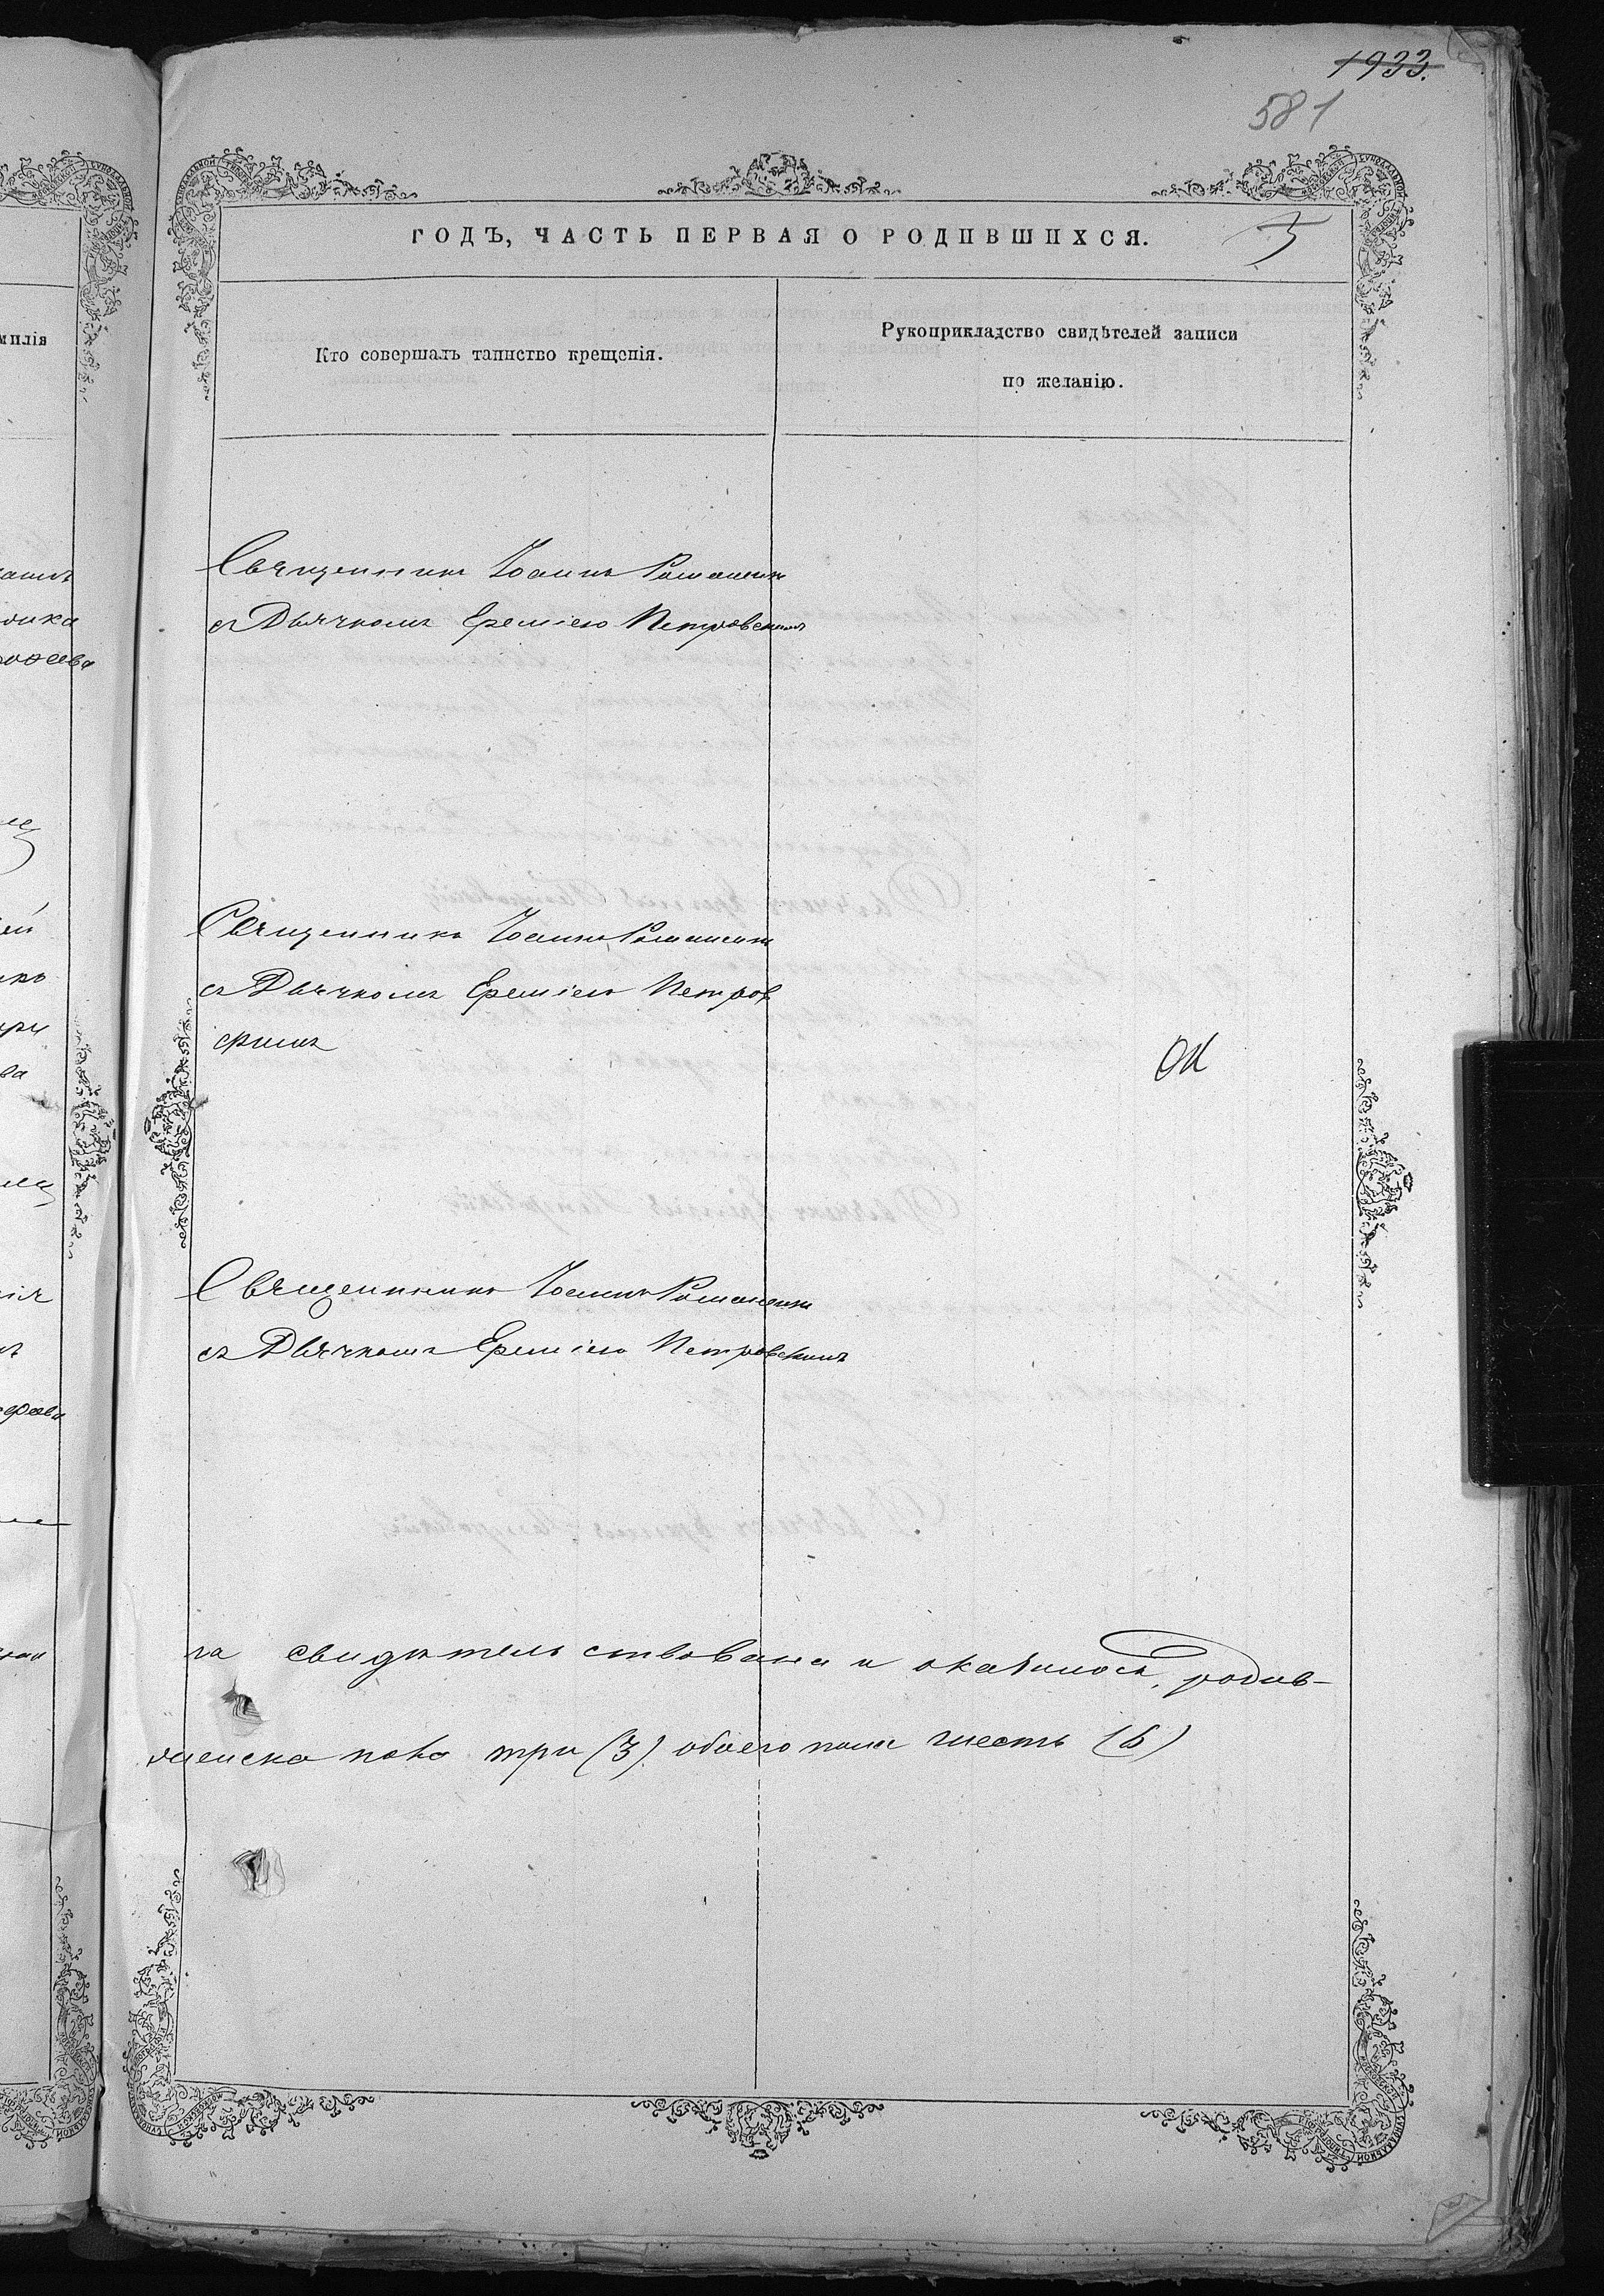 1933.
581
ГОДЪ, ЧАСТЬ ПЕРВАЯ О РОДИВШИХСЯ.
3
милія
Кто совершалъ таинство крещенія.
Рукоприкладство свидѣтелей записи
по желанію.
Священникъ Іоаннъ
съ Дьячкомъ Ереміею Петровскимъ
Священникъ Іоаннъ
съ Дьячкомъ Ереміею Петров
скимъ
Священникъ Іоаннъ
съ Дьячкомъ Ереміею Петровскимъ
га свидѣтельствована и оказалось, родив-
женска пола три (3) обоего пола шесть (6)